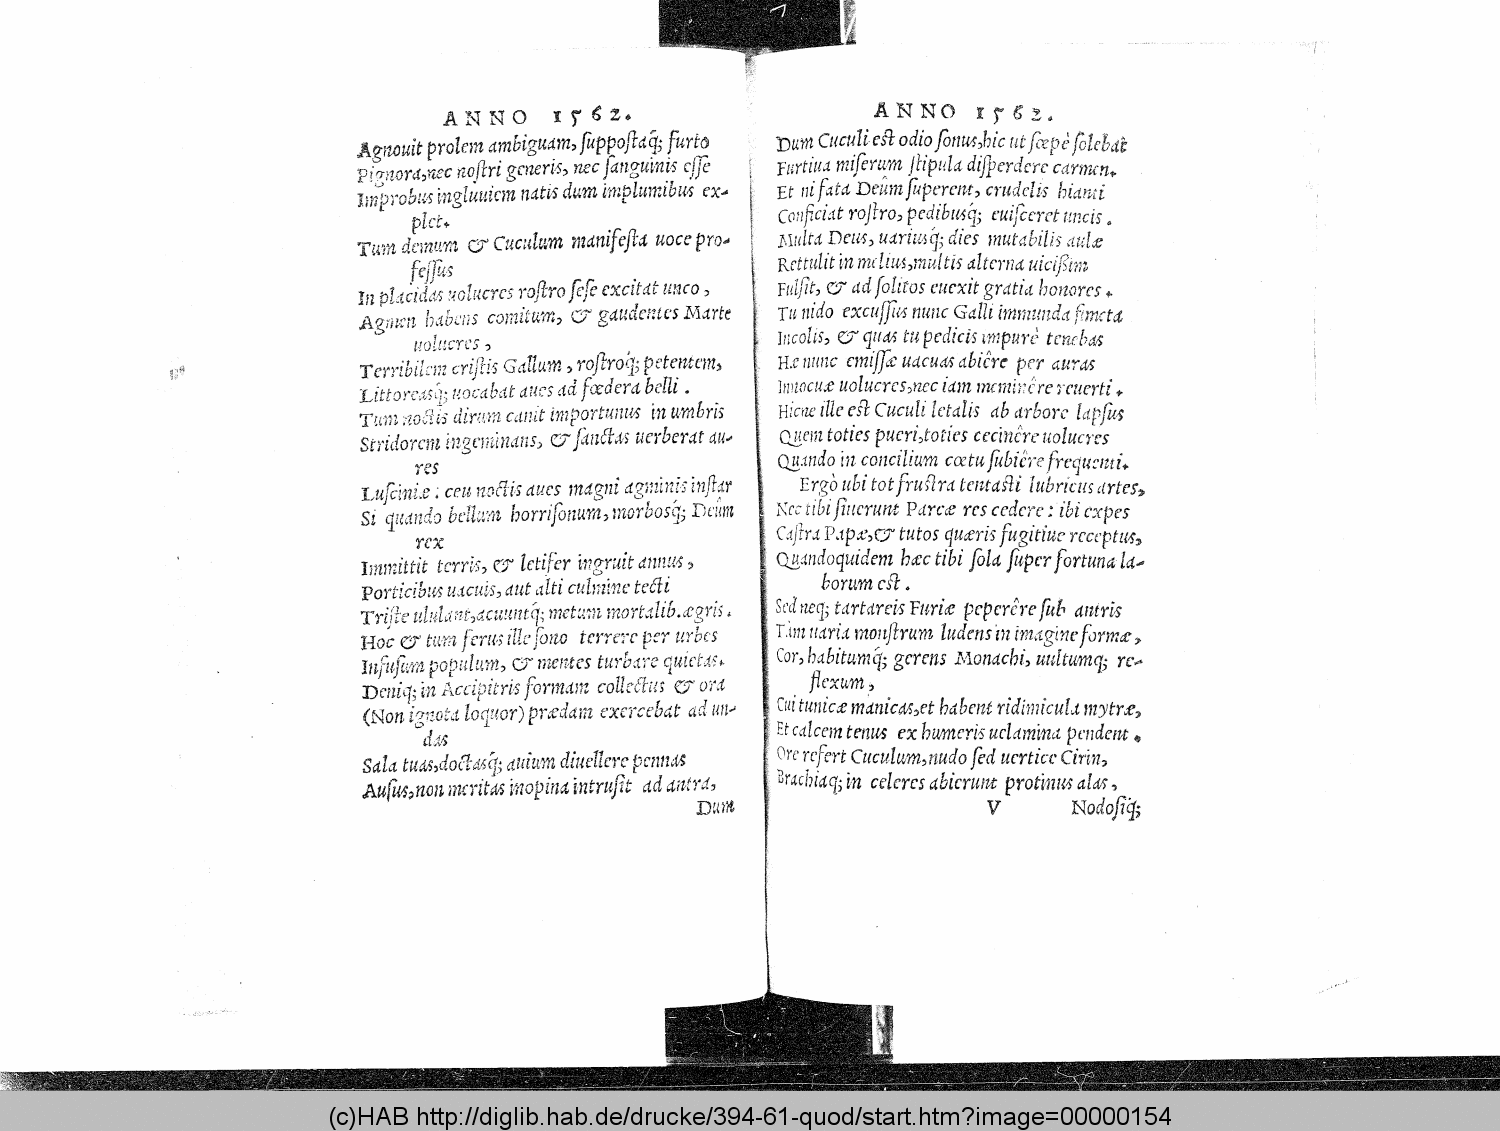 ANNO 1562.
Agnouit prolem ambiguam, suppostaq́; furto
Pignora, nec nostri generis, nec sanguinis esse
Improbus ingluuiem natis dum implumibus ex-
plet.
Tum demum & Cuculum manifesta uoce pro-
fessus
In placidas uolucres rostro sese excitat unco,
Agmen habens comitum, & gaudentes Marte
uolucres,
Terribilem cristis Gallum, rostroq́; petentem,
Littoreasq́; uocabat aues ad fœdera belli.
Tum noctis dirum canit importunus in umbris
Stridorem ingeminans, & sanctas uerberat au-
res
Lusciniæ: ceu noctis aues magni agminis instar
Si quando bellum horrisonum, morbosq́; Deûm
rex
Immittit terris, & letifer ingruit annus,
Porticibus uacuis, aut alti culmine tecti
Triste ululant, acuuntq́; metum mortalib. ægris.
Hoc & tum ferus ille sono terrere per urbes
Insusum populum, & mentes turbare quietas.
Deniq; in Accipitris formam collectus & ora
(Non ignota loquor) prædam exercebat ad un-
das
Sala tuas, doctasq́; auium diuellere pennas
Ausus, non meritas inopina intrusit ad antra,
Dum
ANNO 1562.
Dum Cuculi est odio sonus, hic ut sœpè solebat
Furtiua miserum stipula disperdere carmen.
Et ni fata Deûm superent, crudelis hianti
Conficiat rostro, pedibusq́; euisceret uncis.
Multa Deus, uariusq́; dies mutabilis aulæ
Rettulit in melius, multis alterna uicißim
Fulsit, & ad solitos euexit gratia honores.
Tu nido excussus nunc Galli immunda fimeta
Incolis, & quas tu pedicis impurè tenebas
Hæ nunc emissæ uacuas abiêre per auras
Innocuæ uolucres, nec iam meminêre reuerti.
Hicne ille est Cuculi letalis ab arbore lapsus
Quem toties pueri, toties cecinêre uolucres
Quando in concilium cœtu subiêre frequenti.
Ergò ubi tot frustra tentasti lubricus artes,
Nec tibi siuerunt Parcæ res cedere: ibi expes
Castra Papæ, & tutos quæris fugitiue receptus,
Quandoquidem hæc tibi sola super fortuna la-
borum est.
Sed neq; tartareis Furiæ peperêre sub antris
Tam uaria monstrum ludens in imagine formæ,
Cor, habitumq́; gerens Monachi, uultumq; re-
flexum,
Cui tunicæ manicas, et habent ridimicula mytræ,
Et calcem tenus ex humeris uelamina pendent.
Ore refert Cuculum, nudo sed uertice Cirin,
Brachiaq; in celeres abierunt protinus alas,
V Nodosiq́;
(c)HAB http://diglib.hab.de/drucke/394-61-quod/start.htm?image=00000154